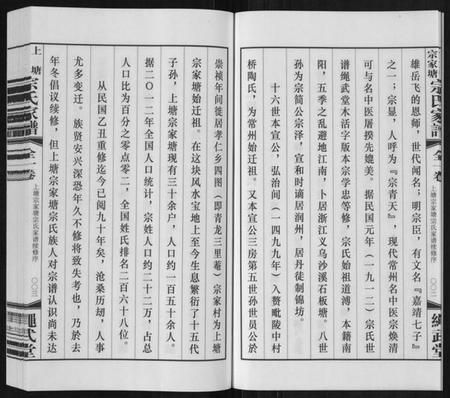 宗家塘宗氏家譜
全一卷
上塘宗家塘宗氏家谱续修序
繩武堂
雄岳飞的恩师，世代闻名；明宗臣，有文名『嘉靖七子』
之一；宗显，人呼为『宗青天』，现代常州名中医宗焕清
可与名中医屠揆先媲美。据民国元年（一九一二）宗氏世
谱绳武堂木活字版本宗学忠等修，宗氏始祖道溥，本籍南
阳，五季之乱避地江南，卜居浙江义乌沙溪石板塘。八世
孙为宗简公宗泽，宣和时谪居润州，居丹徒制锦坊。
十六世本宣公，弘治间（一四九九年）入赘毗陵中村
桥陶氏，为常州始迁祖。又本宣公三房第五世孙世员公於
崇祯年间徙居孝仁乡四图（即青龙三里菴）宗家村为上塘
宗家塘始迁祖。在这块风水宝地上至今生息繁衍了十五代
子孙，上塘宗家塘现有三十余户，人口约一百五十余人。
据二〇一二年全国人口统计，宗姓人口约二十二万，占总
人口比为百分之零点零二，全国姓氏排名二百六十八位。
从民国乙丑重修迄今已阅九十年矣，沧桑历劫，人事
尤多变迁。族贤安兴深恐年久不修将致失考也，乃於去
年冬倡议续修，但上塘宗家塘宗氏族人对宗谱认识尚未达
上塘
宗氏家譜
全一卷
上塘宗家塘宗氏家谱续修序
繩武堂